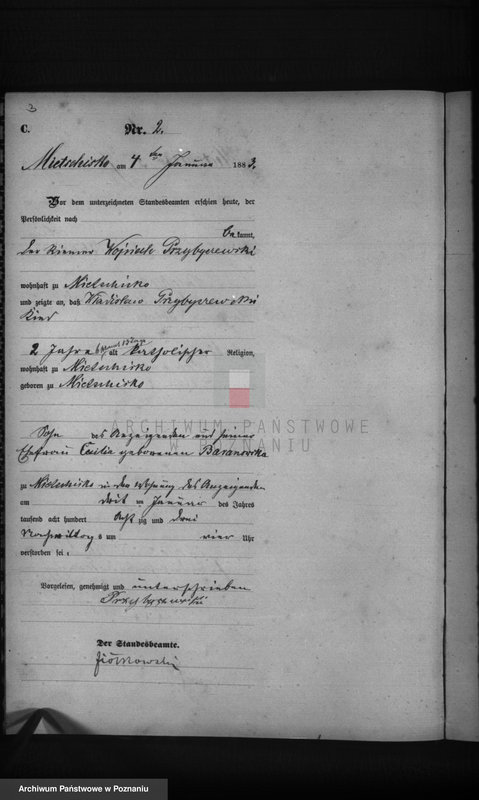 3
C.
Nr. 2.
Mietschisko am 4 ten Januar 1883.
Vor dem unterzeichneten Standesbeamten erschien heute, der
Persönlichkeit nach
bekannt,
der Riemer Wojciech Przybyszewski
wohnhaft zu Mietschisko
und zeigte an, daß Wladislaw Przybyszewski
Kind
2 Jahre 6 Monat 13 Tage alt katholischer Religion,
wohnhaft zu Mietschisko
geboren zu Mietschisko
ARCHIWUM PAŃSTWOWE
W POZNANIU
Sohn des Anzeigenden und seiner
Ehefrau Cecilia geborenen Baranowska
zu Mietschisko in der Wohnung des Anzeigenden
am drei ten Januar des Jahres
tausend acht hundert acht zig und drei
Nachmittags um vier Uhr
verstorben sei.
Vorgelesen, genehmigt und unterschrieben
Przybyszewski
Der Standesbeamte.
Ziółkowski
Archiwum Państwowe w Poznaniu